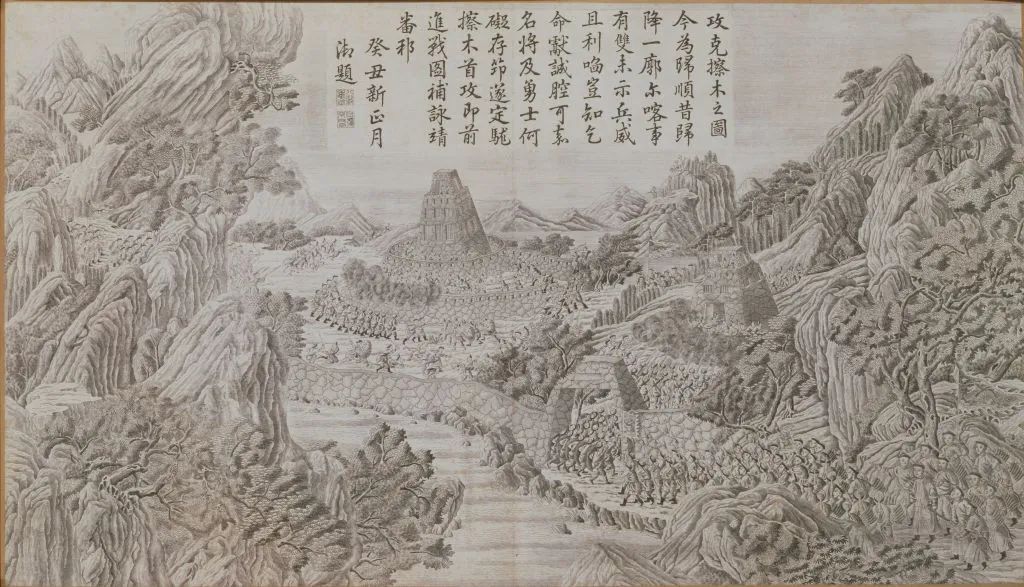 攻克擦木之圖
今為歸順昔歸
降一廓尔喀事
有雙未示兵威
且利啗豈知乞
命獻誠腔可嘉
名將及勇士何
礙存茆遂定駹
擦木首攻即前
進戰圖補詠靖
番邦
癸丑新正月
御題